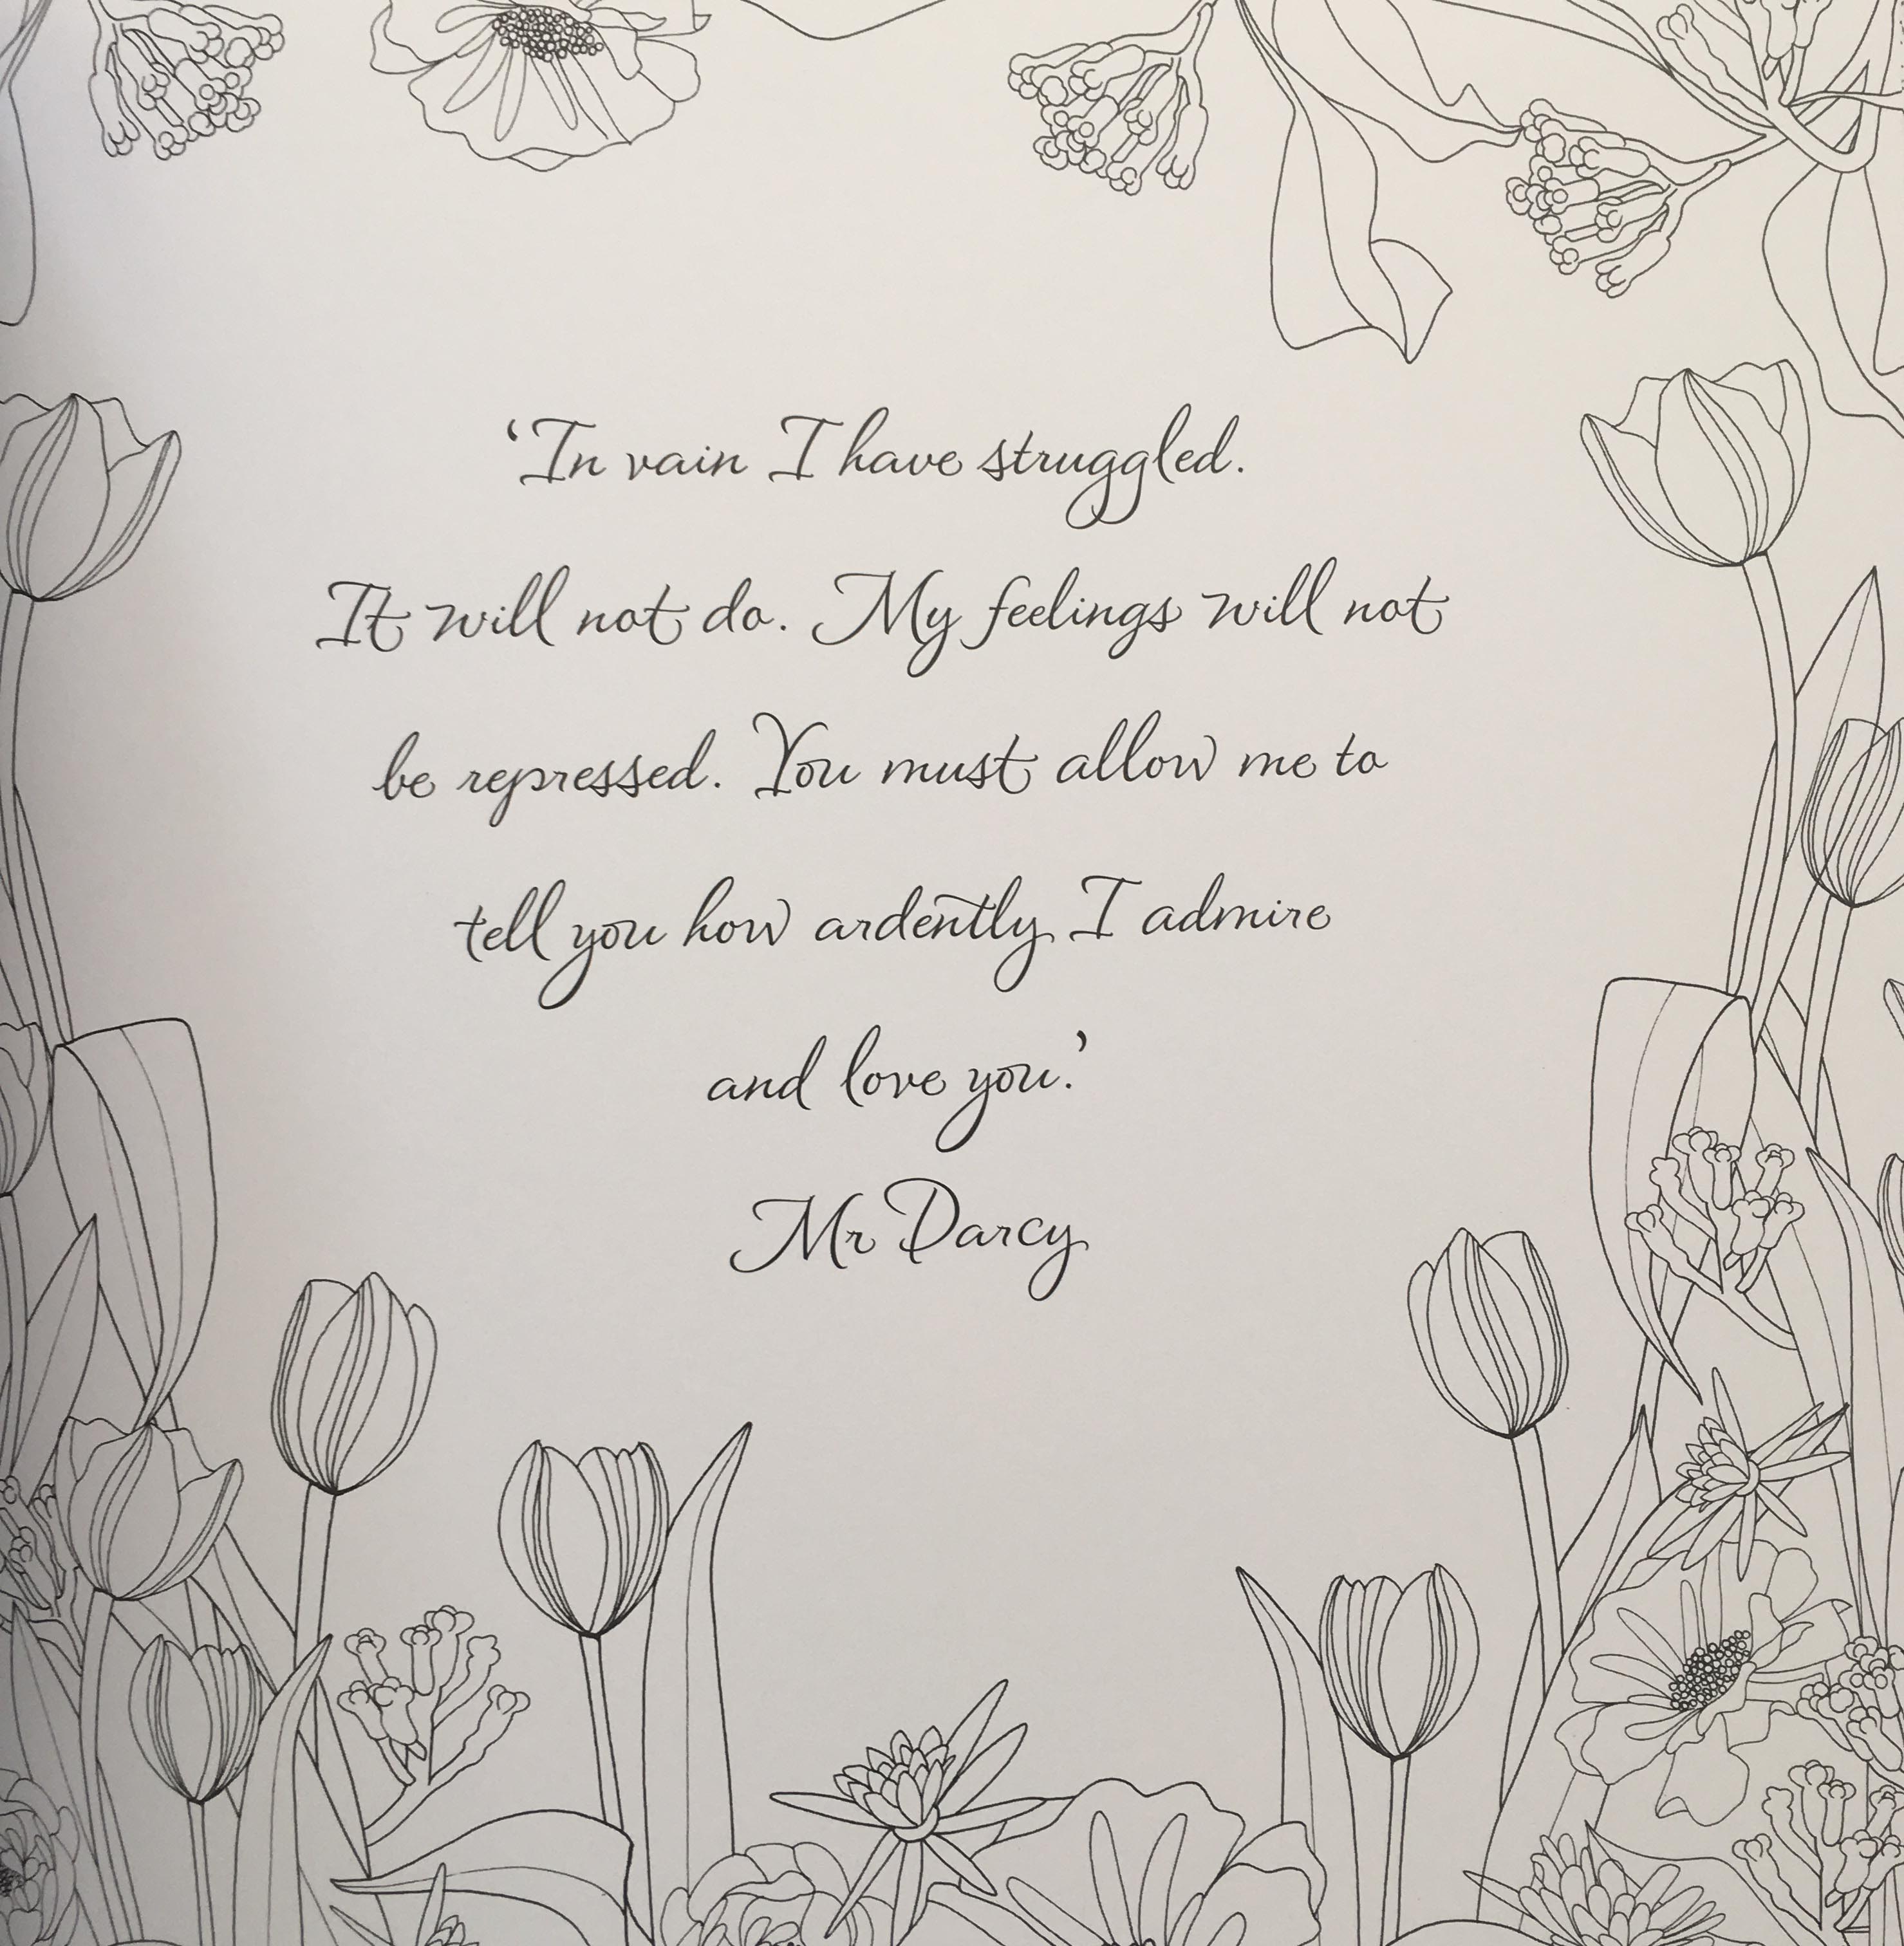 ‘In vain I have struggled.
It will not do. My feelings will not
be repressed. You must allow me to
tell you how ardently I admire
and love you.’
Mr Darcy